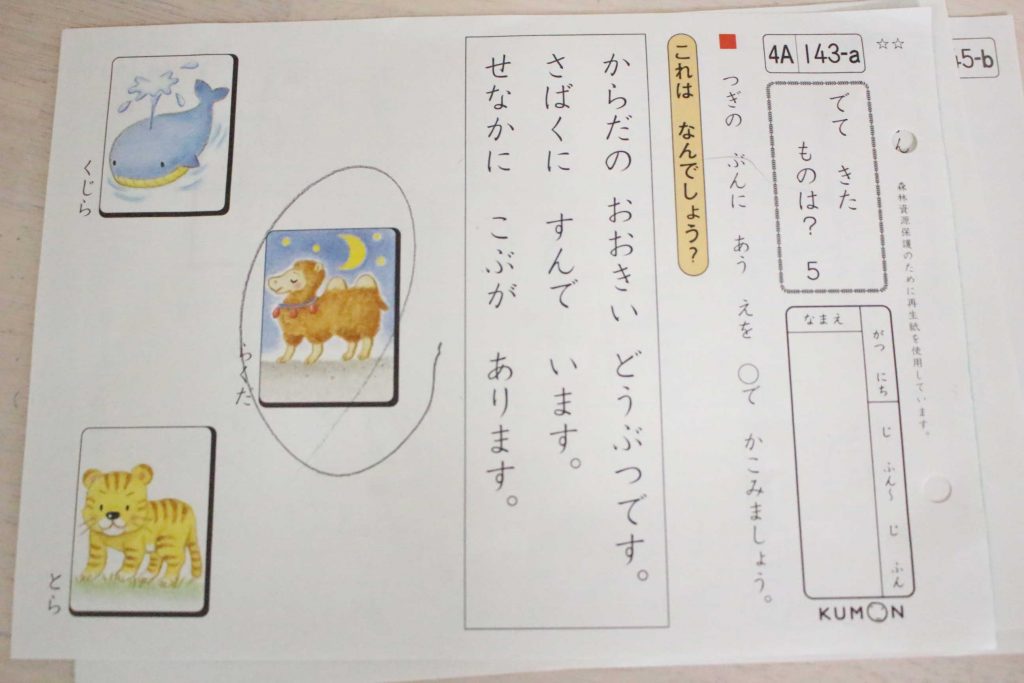 ☆☆
4A 143-a
45-b
でて きた
ものは? 5
森林資源保護のために再生紙を使用しています。
がつ にち
じ ふん〜 じ ふん
なまえ
KUMON
■ つぎの ぶんに あう えを ○で かこみましょう。
これは なんでしょう?
からだの おおきい どうぶつです。
さばくに すんで います。
せなかに こぶが あります。
くじら
らくだ
とら